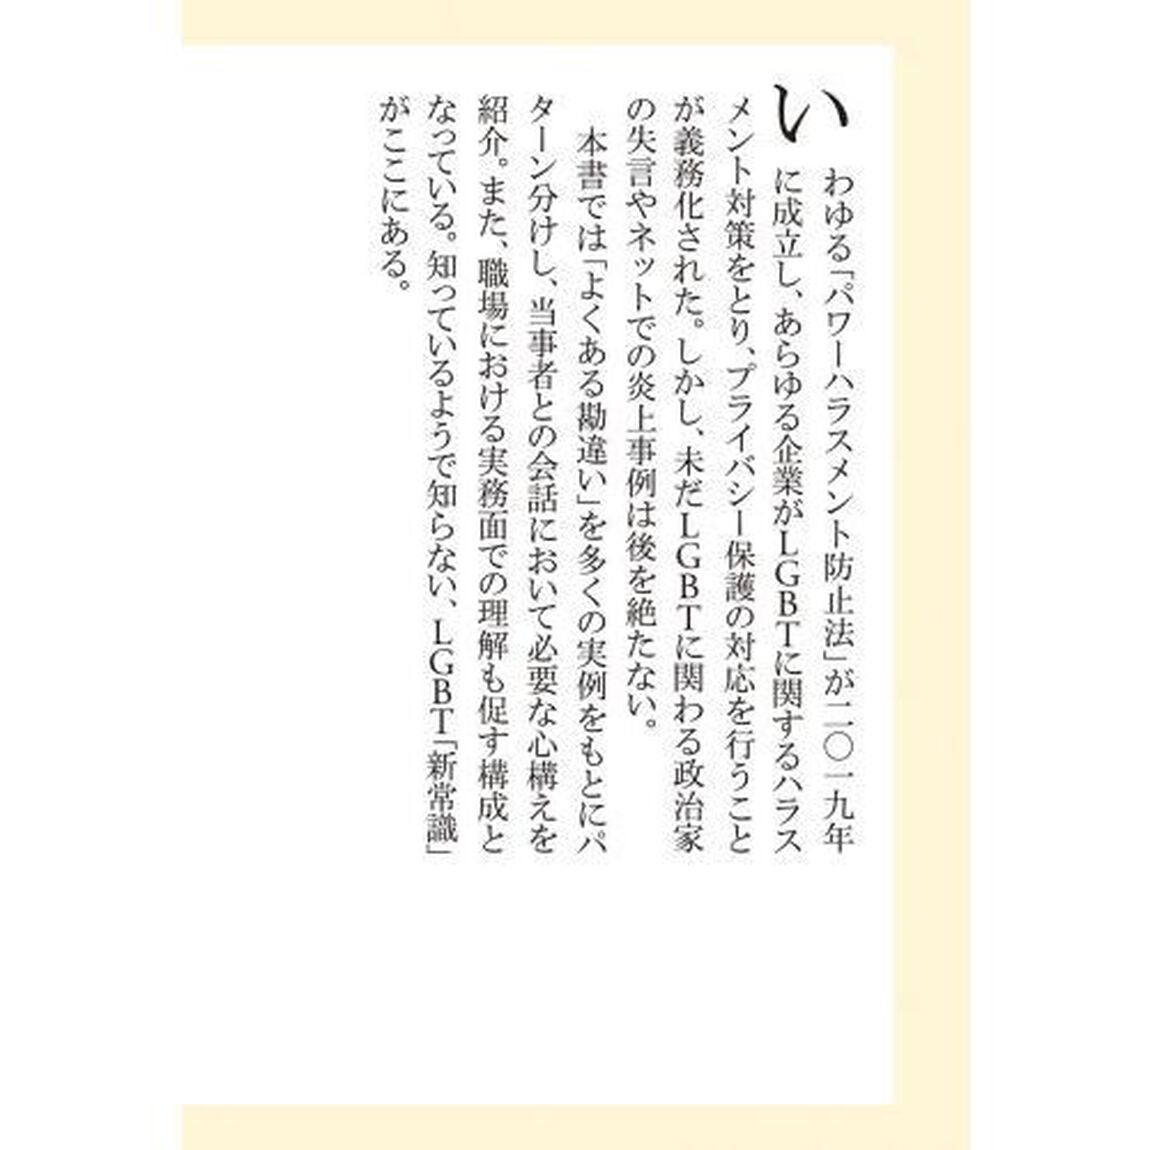 いわゆる「パワーハラスメント防止法」が二〇一九年
に成立し、あらゆる企業がLGBTに関するハラス
メント対策をとり、プライバシー保護の対応を行うこと
が義務化された。しかし、未だLGBTに関わる政治家
の失言やネットでの炎上事例は後を絶たない。
本書では「よくある勘違い」を多くの実例をもとにパ
ターン分けし、当事者との会話において必要な心構えを
紹介。また、職場における実務面での理解も促す構成と
なっている。知っているようで知らない、LGBT「新常識」
がここにある。